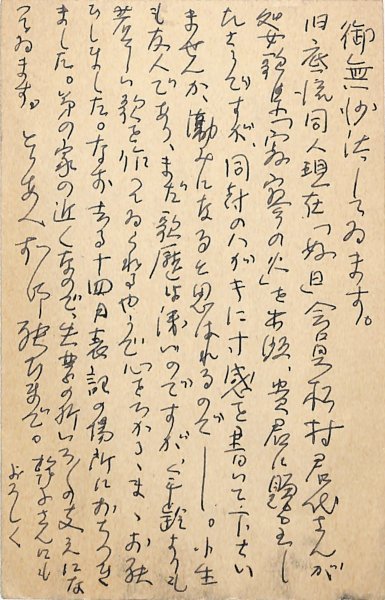 御無沙汰してゐます。
旧底流同人現在「如日」会員松村君代さんが
処女歌集「寒夜の火」を出版、貴君に贈呈し
たさうですが、同封のハガキに寸感を書いて下さい
ませんか、励みになると思はれるので――。小生
も友人であり、まだ歌歴は浅いのですが、年齢よりも
若々しい歌を作ってゐられるやうで心をひかれ、まゝお願
ひしました。なお去る十四日表記の場所におちつき
ました。弟の家の近くなので、生活の折いろいろ支えにな
ってゐます。とりあへずお願ひまで。幹子さんにも
よろしく